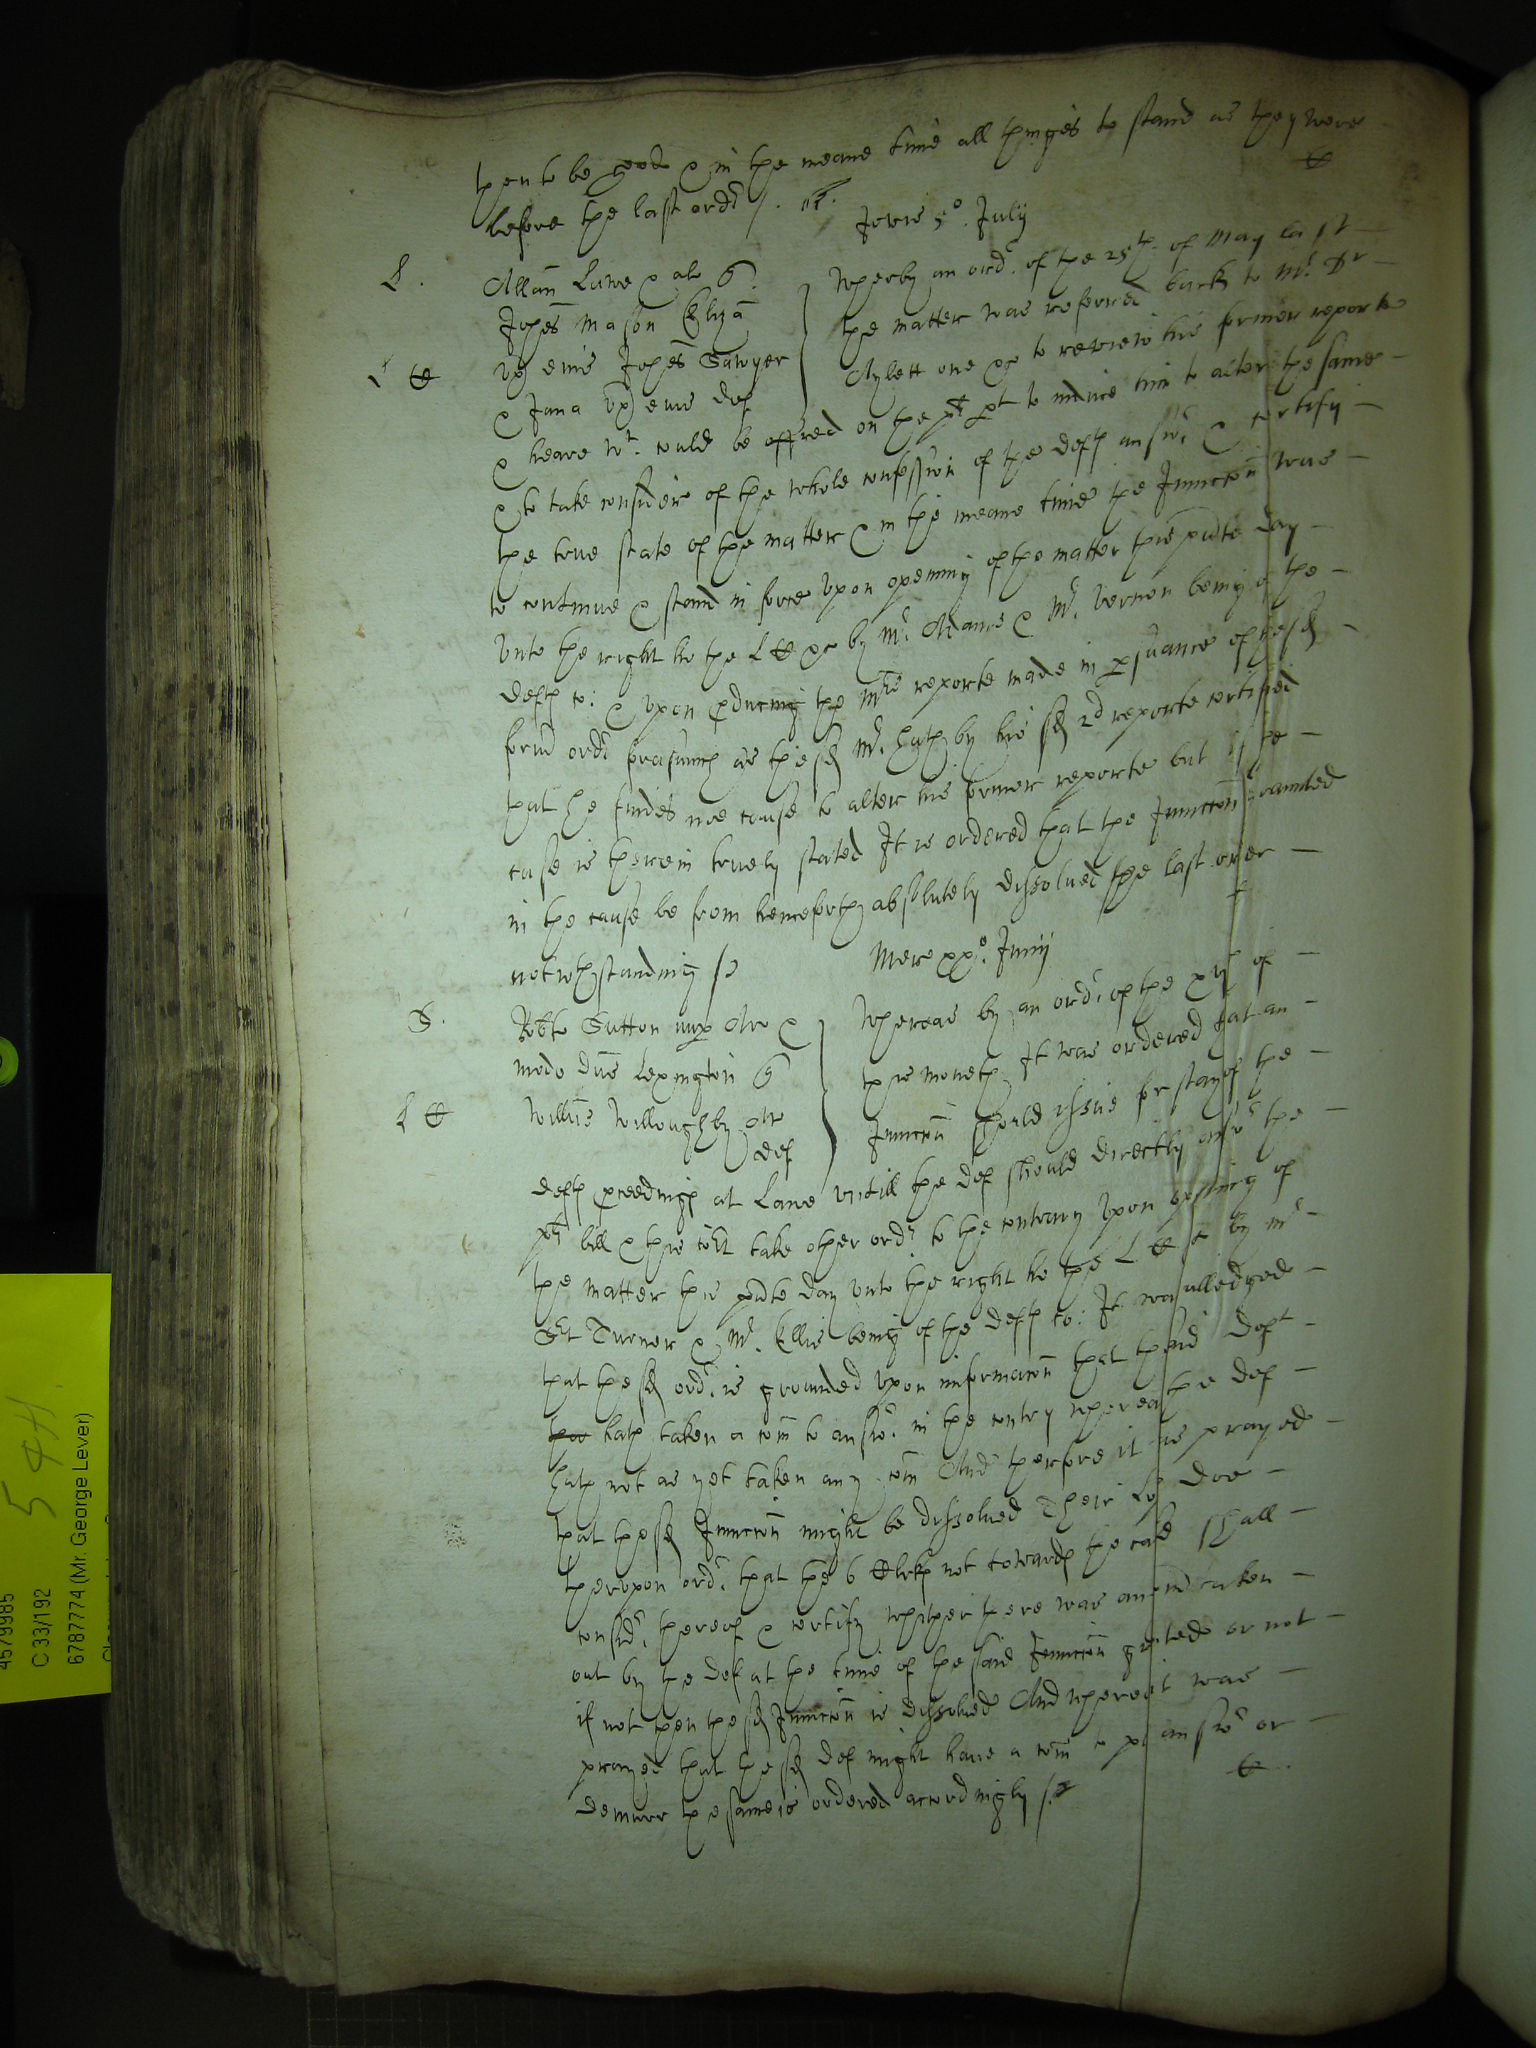 then to be good & in the meane time all thinges to stand as they were
before the last ordr /.
Jovis 5o. July
L.
Allan Lawe & al q
Johes Mason Eliza
vx eius Johes Sawyer
& Jana vx eius def
Wherby an ordr. of the 25th. of May last
the matter was referred back to Mr. Dr
Aylett one &c to review his former reporte
& heare wt. could be offred on the plt pt to induce him to alter the same
& to take consider of the whole confession of the defts answr & certify
the true state of the matter & in the meane time the Iniunccon was
to continue & stand in force Vpon opening of the matter this pñte day
vnto the right ho the L &c by Mr. Adams & Mr. Vernon being of the
defts co: & vpon pducing the Mrs reporte made in psuance of the sd
formr ordr forasmuch as the sd Mr. hath by his sd 2d reporte certified
that he findes noe cause to alter his former reporte but ye
case is therein truely stated It is ordered that the Iniunccon graunted
in the cause be from henceforth absolutely dissolued the last order
notwthstanding /
Mer xxo. Junij
S.
Robte Sutton nup Ar &
modo Dns Lexington q
Willus Willoughby Ar
def
Whereas by an ordr. of the xvjth of
this moneth It was ordered that an
Iniunccon should issue for stay of the
defts pceedings at Lawe vntill the def should directly answr the
plts bill & this Cort take other ordr to the contrary Vpon opening of
the matter this pñte day vnto the right ho the L &c by Mr
Srt Turner & Mr. Ellis being of the defts co: It was alledged
that the sd ordr. is grounded vpon informacon that the said deft
hath taken a com to answr. in the contry whereas the def
hath not as yet taken any com And therfore it is prayed
that the sd Iniunccon might be dissolued Their Lo doe
therevpon ordr. that the 6 Clerks not towards the case shall
considr. thereof & certify whither there was any com taken
out by the def at the time of the said Iniunccon grñted or not
if not then the sd Iniunccon is dissolued And whereas it was
prayed that the sd def might haue a com to pl answr or
demurr the same is ordered accordingly /.
4579985
C 33/192
6787774 (Mr. George Lever)